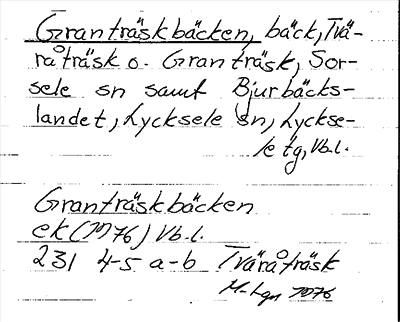 Granträskbäcken, bäck, Tvä-
råträsk o. Granträsk, Sor-
sele sn samt Bjurbäcks-
landet, Lycksele sn, Lyckse-
le tg, Vb.l.
Granträskbäcken
ek (1976) Vb.l.
231 4-5 a-b Tväråträsk
1976